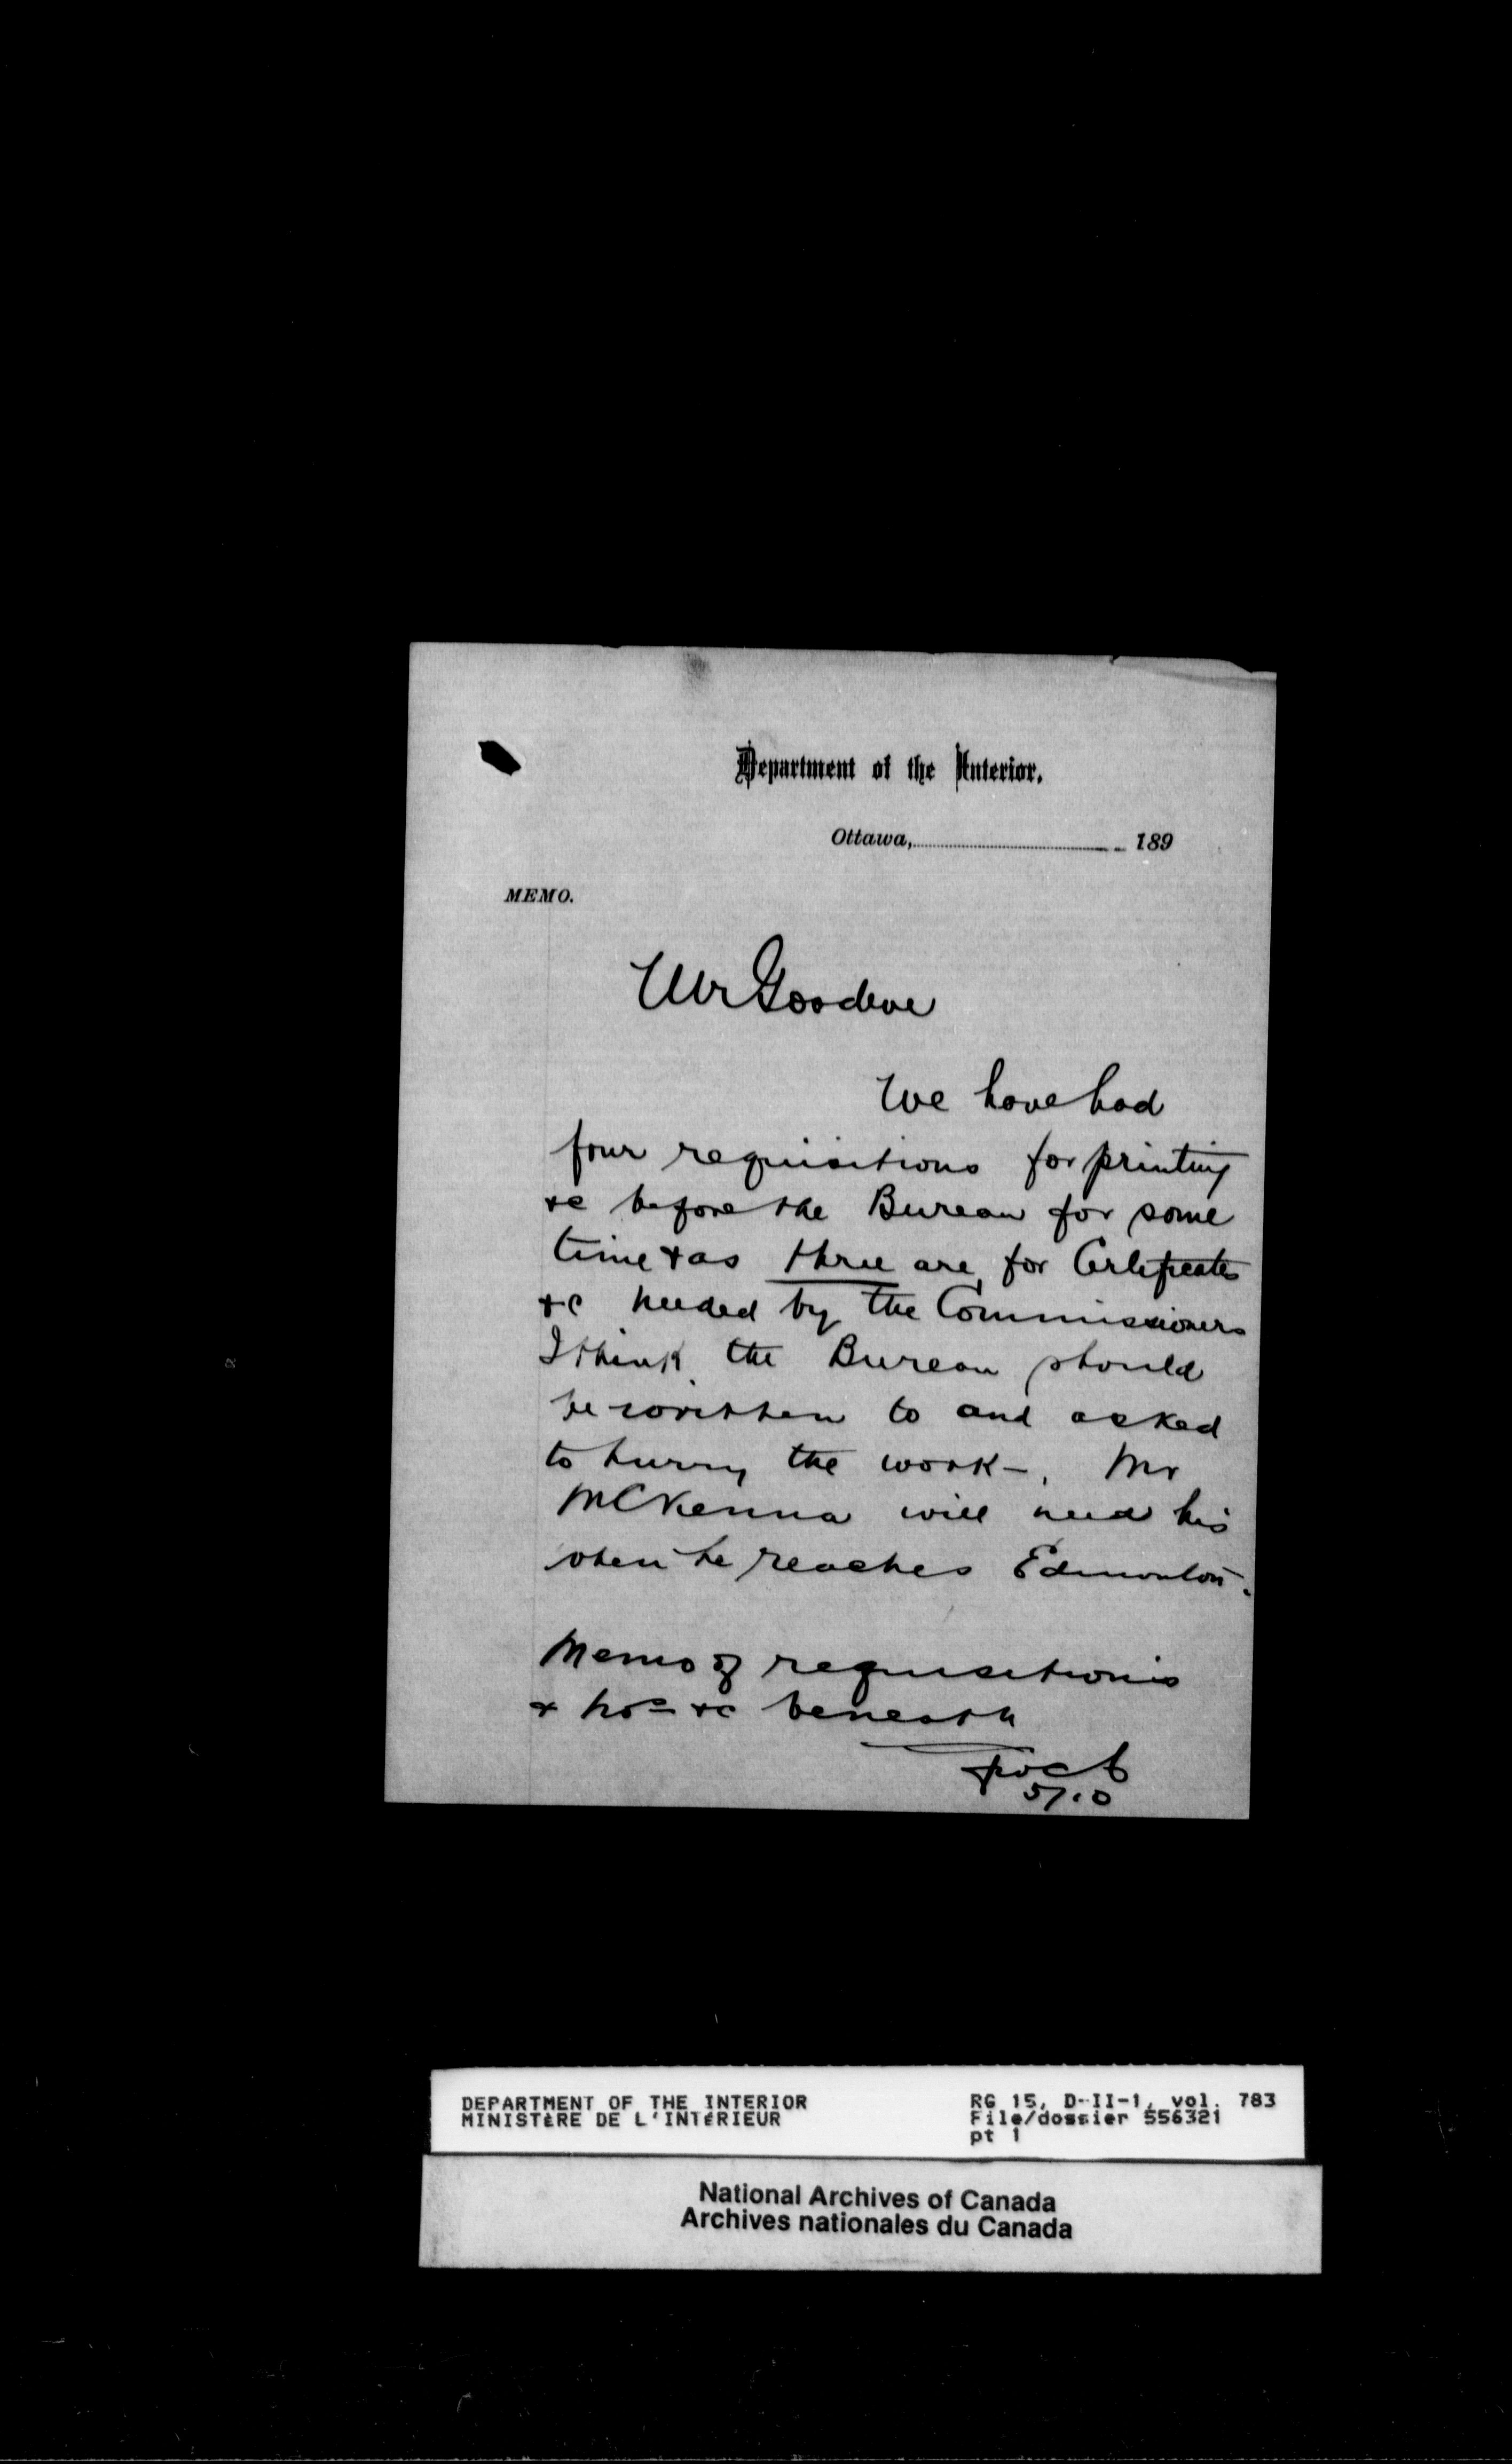 Department of the Interior.
Ottawa, 189
MEMO.
Mr Goodeve
We have had
four requisitions for printing
&c before the Bureau for some
time & as three are for Certificates
&c needed by the Commissioners
I think the Bureau should
be written to and asked
to hurry the work -. Mr
McKenna will need his
when he reaches Edmonton.
Memo of requisitions
& nos &c beneath
DEPARTMENT OF THE INTERIOR
MINISTÈRE DE L'INTÉRIEUR
RG 15, D-II-1, vol. 783
File/dossier 556321
pt 1
National Archives of Canada
Archives nationales du Canada